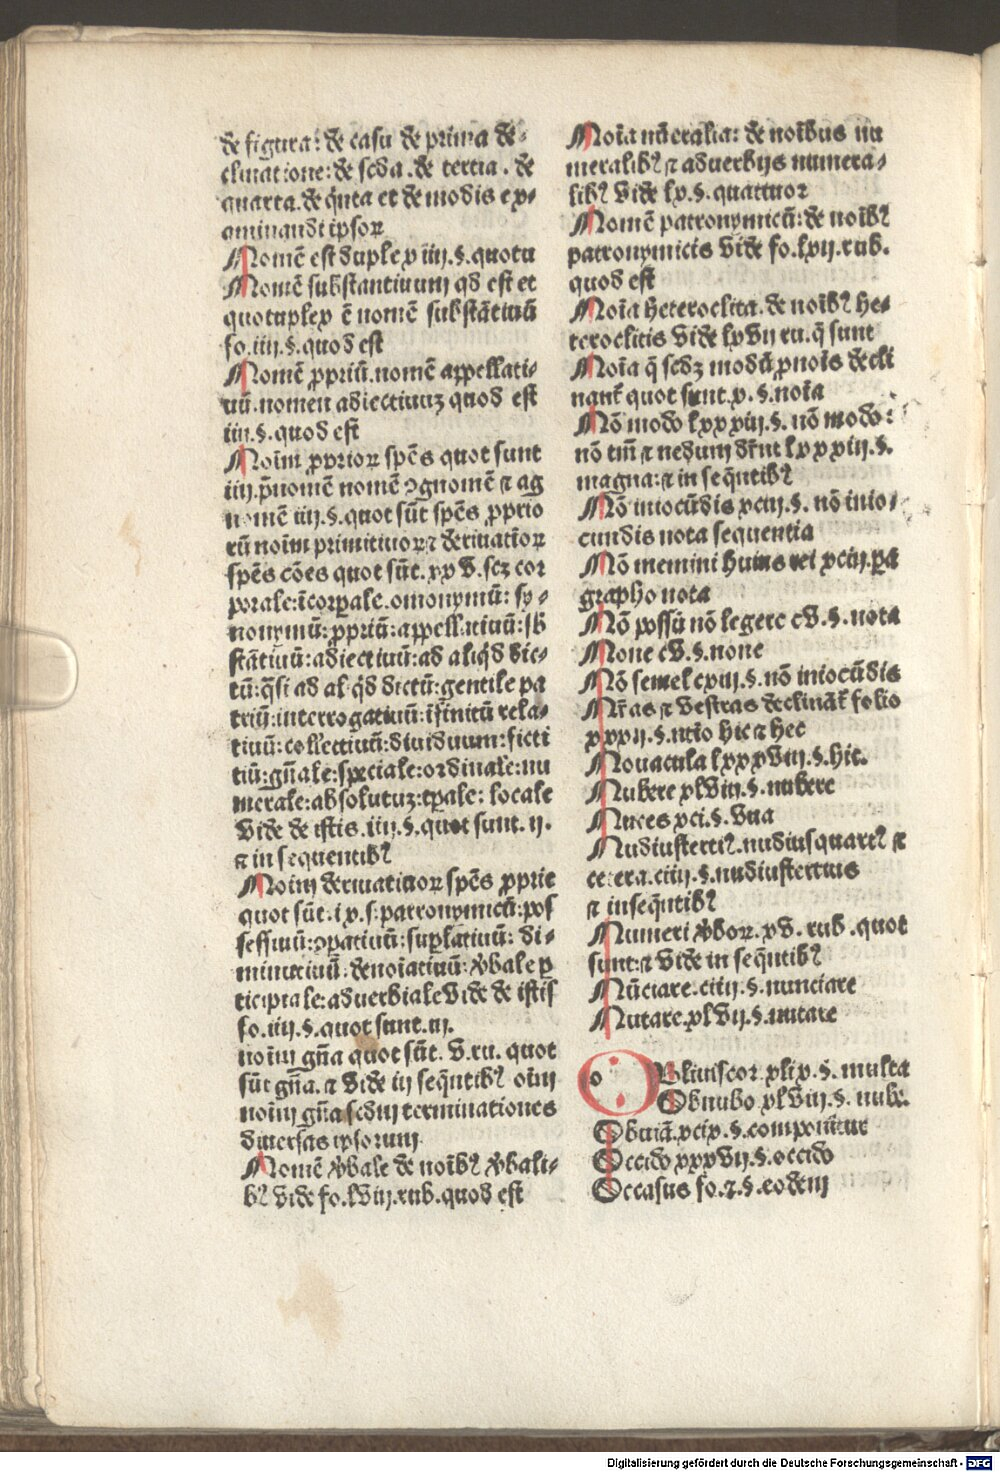 de figura: de casu de prima de-
clinatione: de scda. de tertia. de
quarta. de q̃nta et de modis ex-
aminandi ipsoꝝ
Nomẽ est duplex iiij.§.quotu
Nomẽ substantiuum qđ est et
quotuplex ẽ nomẽ substãtiuũ
fo.iiij.§.quod est
Nomẽ ꝓpriũ.nomẽ appellati-
uũ.nomen adiectiuuʒ quod est
iiij.§.quod est
Noĩm ꝓprioꝝ spẽs quot sunt
iiij.p̃nomẽ nomẽ ꝯgnomẽ ⁊ ag
nomẽ iiij.§.quot sũt spẽs ꝓprio
rũ noĩm primitiuoꝝ ⁊ deriuatioꝝ
spẽs cões quot sũt.xxv.scʒ cor
porale:ĩcorꝑale.omonymũ: sy-
nonymũ:ꝓpriũ:appellatiuũ:sb
stãtiuũ:adiectiuũ:ad aliq̃d dic-
tũ:q̃si ad aliq̃d dictũ:gentile pa
triũ:interrogatiuũ:ĩfinitũ rela-
tiuũ:collectiuũ:diuiduum:ficti
tiũ:gñale:speciale:ordinale:nu
merale:absolutuʒ:tꝑale: locale
vide de istis.iiij.§.quot sunt.ij.
⁊ in sequentibꝰ
Noĩm deriuatiuoꝝ spẽs ꝓprie
quot sũt.ix.s:patronymicũ:pos
sessiuũ:ꝯparatiuũ:suꝑlatiuũ: di-
minutiuũ:denoĩatiuũ:v̓bale ꝑ
ticipiale:aduerbiale vide de istis
fo.iiij.§.quot sunt.iij.
noĩm gña quot sũt. v.ru. quot
sũt gña.⁊ vide in seq̃ntibꝰ oĩm
noĩm gña scdm terminationes
diuersas ipsorum
Nomẽ v̓bale de noĩbꝰ v̓bali-
bꝰ vide fo.lviij.rub.quod est
Noĩa nũeralia: de noĩbus nu
meralibꝰ ⁊ aduerbijs numera-
libꝰ vide lx.§.quattuor
Nomẽ patronymicũ: de noĩbꝰ
patronymicis vide fo.lvij.rub.
quod est
Noĩa heteroclita.de noĩbꝰ he-
teroclitis vide lxvij ru.q̃ sunt
Noĩa q̃ scdʒ modũ ꝓnoĩs decli
nant̃ quot sunt.x.§.noĩa
Nõ modo lxxxiij.§. nõ modo:
nõ tm̃ ⁊ nedum dr̃nt lxxxiij.§.
magna:⁊ in seq̃ntibꝰ
Nõ iniocũdis xciij.§. nõ inio-
cundis nota sequentia
Nõ memini huius rei xciij.pa
grapho nota
Nõ possũ nõ legere cv.§.nota
None cv.§.none
Nõ semel cxiij.§.nõ iniocũdis
Nr̃as ⁊ vestras declinãt̃ folio
xxxij.§.ntio hic ⁊ hec
Nouacula lxxxviij.§.hic.
Nubere xlviij.§.nubere
Nuces xci.§.vna
Nudiustertiꝰ.nudiusquartꝰ ⁊
cetera.ciiij.§.nudiustertius
⁊ inseqũtibꝰ
Numeri v̓boꝝ.xv. rub.quot
sunt:⁊ vide in seq̃ntibꝰ
Nũciare.ciiij.§.nunciare
Nutare.xlvij.§.nutare
Obliuiscor xlix.§.multa
Obnubo xlviij.§.nube.
Obuiã.xcix.§.componitur
Occido xxxvij.§.occido
Occasus fo.⁊.§.eodem
Digitalisierung gefördert durch die Deutsche Forschungsgemeinschaft - DFG